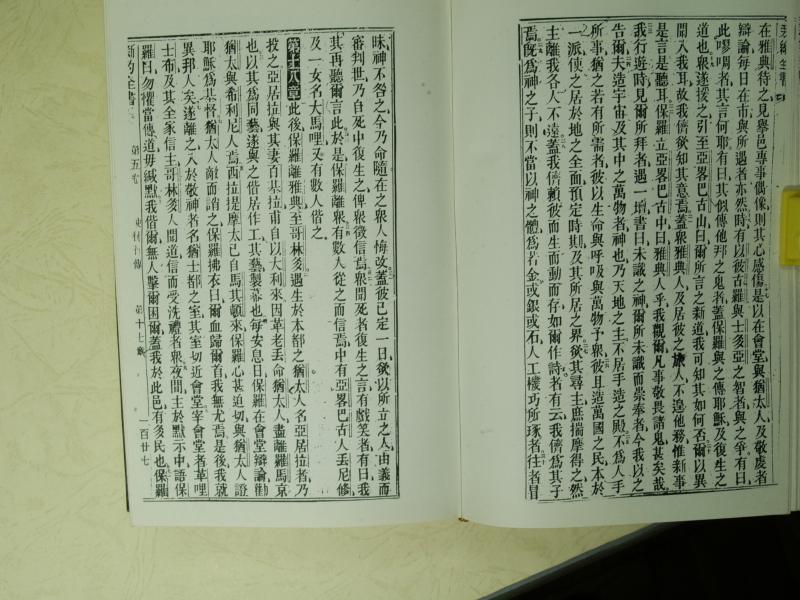 在雅典待之見舉邑專事偶像則其心感傷是以在會堂與猶太人及敬虔者
辯論每日在市與所遇者亦然時有以彼古羅與士多亞之智者與之爭有曰
此嘐啁者其言何耶有曰其似傳他邦之鬼者蓋保羅與之傳耶穌及復生之
道也衆遂援之引至亞畧巴古山曰爾所言之新道我可知其如何否爾以異
聞入我耳故我儕欲知其意焉蓋衆雅典人及居彼之旅人不遑他務惟新事
是言是聽耳保羅立亞畧巴古中曰雅典人乎我觀爾凡事敬畏諸鬼甚矣哉
我行遊時見爾所拜者遇一壇書曰未識之神爾所未識而崇奉者今我以之
告爾夫造宇宙及其中之萬物者神也乃天地之主不居手造之殿不爲人手
所事猶之若有所需者彼以生命與呼吸與萬物予衆彼且造萬國之民本於
一派使之居於地之全面預定時期及其所居之界欲其尋主庶揣摩得之然
主離我各人不遠蓋我儕賴彼而生而動而存如爾作詩者有云我儕爲其子
焉旣爲神之子則不當以神之體爲若金或銀或石人工機巧所琢者往者冒
昧神不咎之今乃命隨在之衆人悔改蓋彼已定一日欲以所立之人由義而
審判世乃自死中復生之俾衆徵信焉衆聞死者復生之言有戲笑者有曰我
其再聽爾言此於是保羅離衆有數人從之而信焉中有亞畧巴古人丟尼修
及一女名大馬哩又有數人偕之
第十八章此後保羅離雅典至哥林多遇生於本都之猶太人名亞居拉者乃
投之亞居拉與其妻百基拉甫自以大利來因革老丟命猶太人盡離羅馬京
也以其爲同藝遂與之偕居作工其藝製幕也每安息日保羅在會堂辯論勸
猶太與希利尼人焉西拉提摩太已自馬其頓來保羅心甚迫切與猶太人證
耶穌爲基督猶太人敵而誚之保羅拂衣曰爾血歸爾首我無尤焉是後我就
異邦人矣遂離之入於敬神者名猶士都之室其室切近會堂宰會堂者革哩
士布及其全家信主哥林多人聞道信而受洗禮者衆夜間主於默示中語保
羅曰勿懼當傳道毋緘默我偕爾無人擊爾困爾蓋我於此邑有多民也保羅
新約全書 第五卷 使徒行傳 第十七章 一百廿七